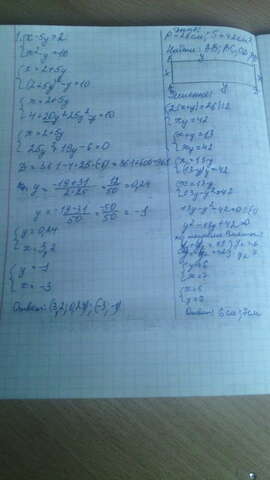 1. {x-5y=2
{x²-y=10
{x=2+5y
{(2+5y)²-y=10
{x=2+5y
{4+20y+25y²-y=10
{x=2+5y
{25y²+19y-6=0
D=361-4·25·(-6)=361+600=961
y = -19+31 / 2·25 = 12/50 = 0,24
y = -19-31 / 50 = -50/50 = -1
{y=0,24
{x=3,2
{y=-1
{x=-3
Ответ: (3,2; 0,24); (-3; -1)
P=26см; S=42см²
Найти: AB; BC; CD; AD
y
x
Решение:
{2(x+y)=26 |:2
{xy=42
{x+y=13
{xy=42
{x=13-y
{(13-y)y=42
{x=13-y
{13y-y²=42
13y-y²-42=0 |:(-1)
y²-13y+42=0
{y=6
{x=7
{x=6
{y=7
Ответ: 6см; 7см